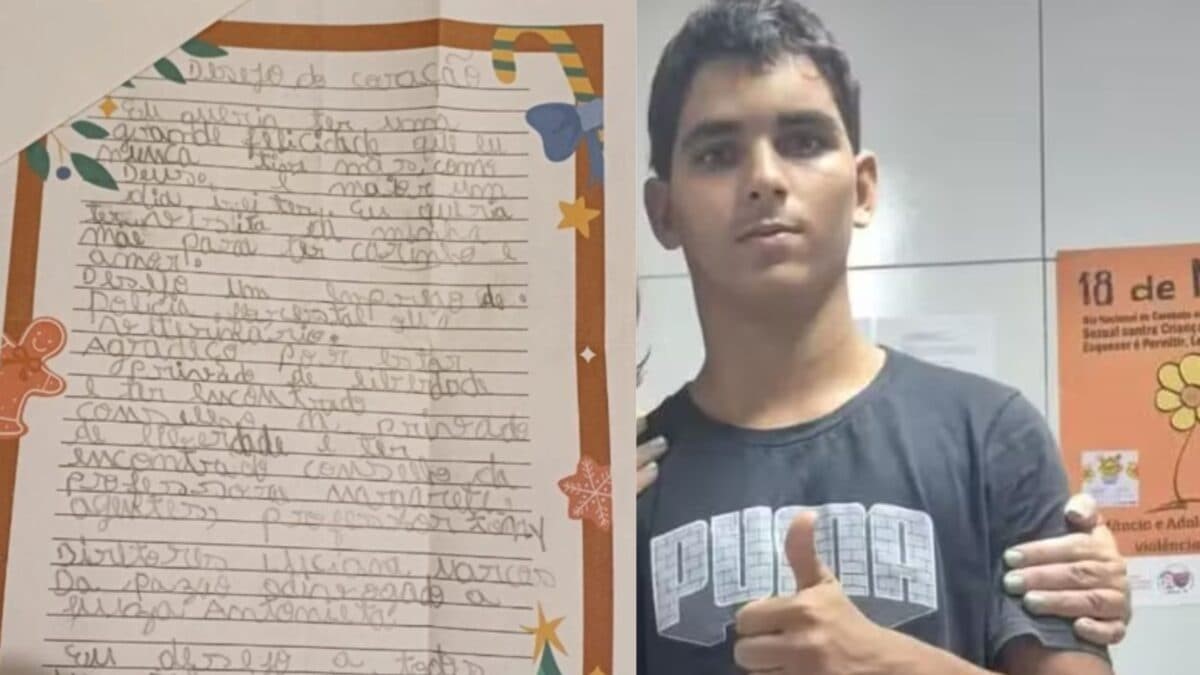 Desejo do coração
Eu queria ter um
grande felicidade que eu
nunca tive mas como
Deus e maior um
dia irei ter. Eu queria
ter visita da minha
mãe para ter carinho e
amor.
Desejo um emprego de
Policia florestal ou
veterinário.
Agradeço por estar
privado de liberdade
e ter encontrado
conselho privado
de liberdade e ter
encontrado conselho da
professora Margarete
agentes, professor tony
Diretores Luciana Marcos
Da
juiza Antonieta.
Eu desejo a todos
PUMA
18 de M
Dia Nacional de Combate
Sexual contra Crian
Esquecer é Permitir, Le
lência e Ado
violênc